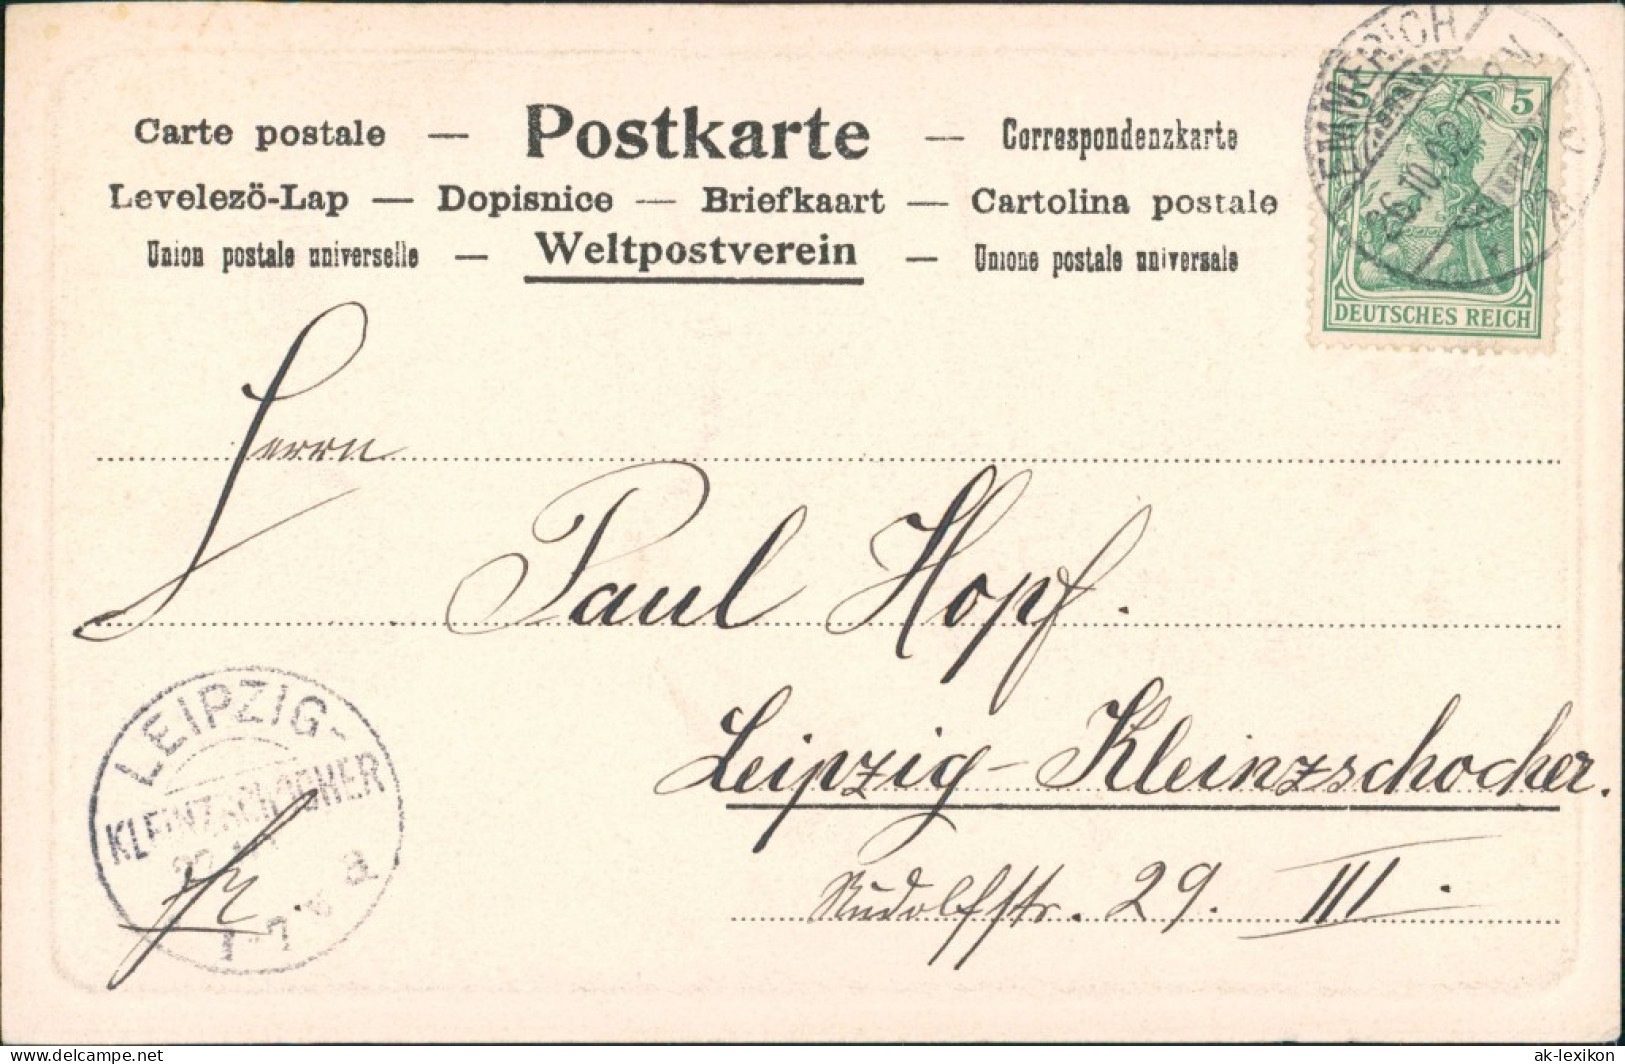 Carte postale — Postkarte — Correspondenzkarte
Levelezö-Lap — Dopisnice — Briefkaart — Cartolina postale
Union postale universelle — Weltpostverein — Unione postale universale
EMMERICH
26.10.02. 7-8V.
5
DEUTSCHES REICH
Herrn
Paul Hopf.
Leipzig-Kleinzschocher.
Rudolfstr. 29. III.
LEIPZIG-
KLEINZSCHOCHER
a
delcampe.net
ak-lexikon